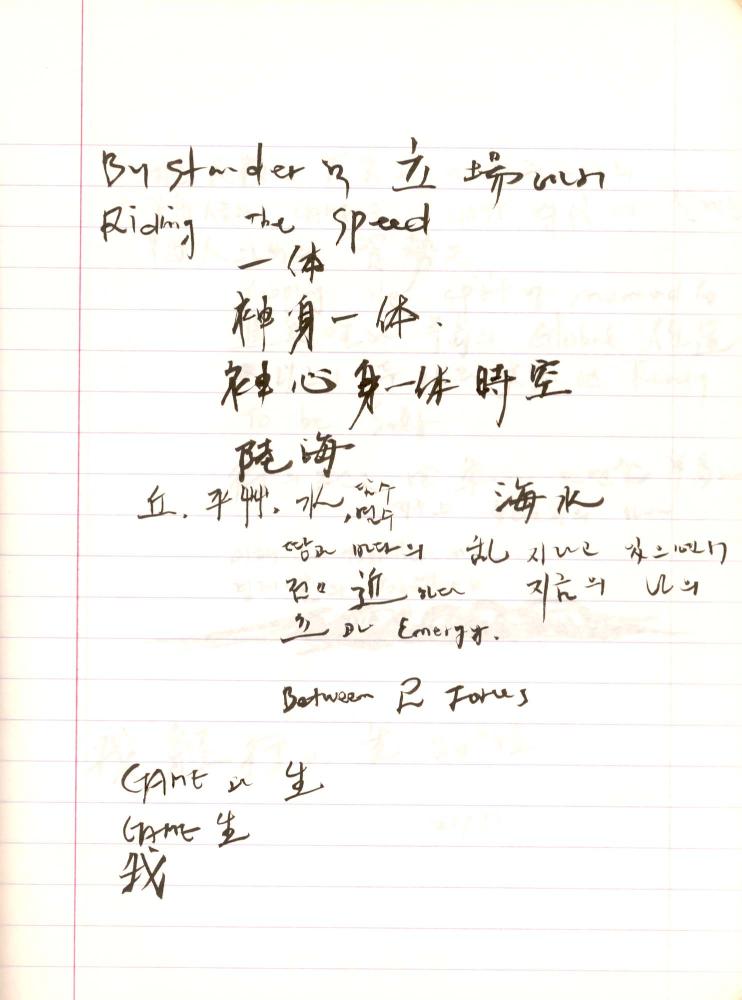 Bystander의 立場에서
Riding the speed
一体
神身一体.
神心身一体時空
陸海
丘. 平艸. 海水
땅과 바다의 지나고 있으면서
점점 近 하다 지금의 나의
과 Energy.
Between 2 Forces
GAME과 生
GAME 生
我